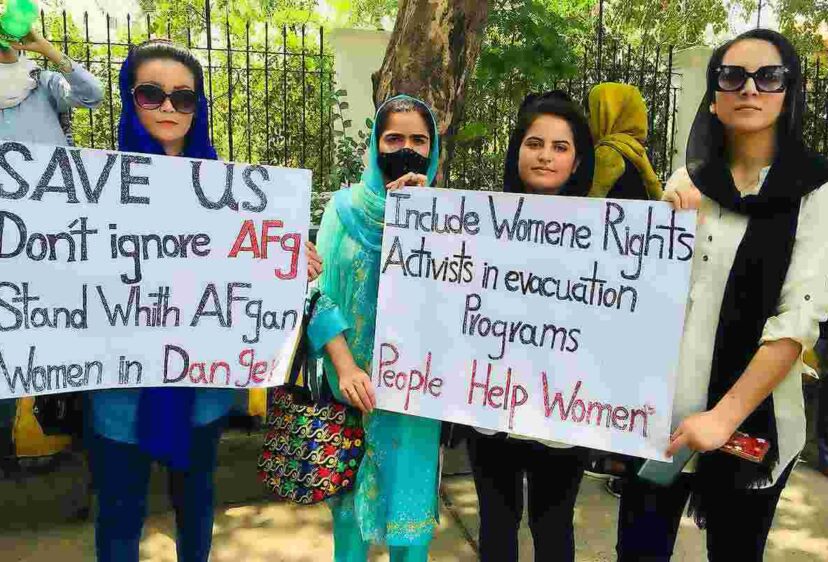 SAVE US
Don't ignore AFg
Stand Whith AFgan
Women in Danger
Include Womene Rights
Activists in evacuation
Programs
People Help Women